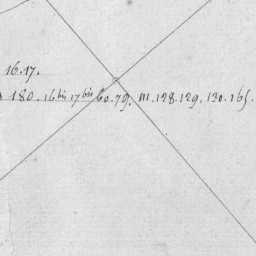 16.17.
180. 16bis 17bis 60. 79. 111. 128. 129. 130. 165.